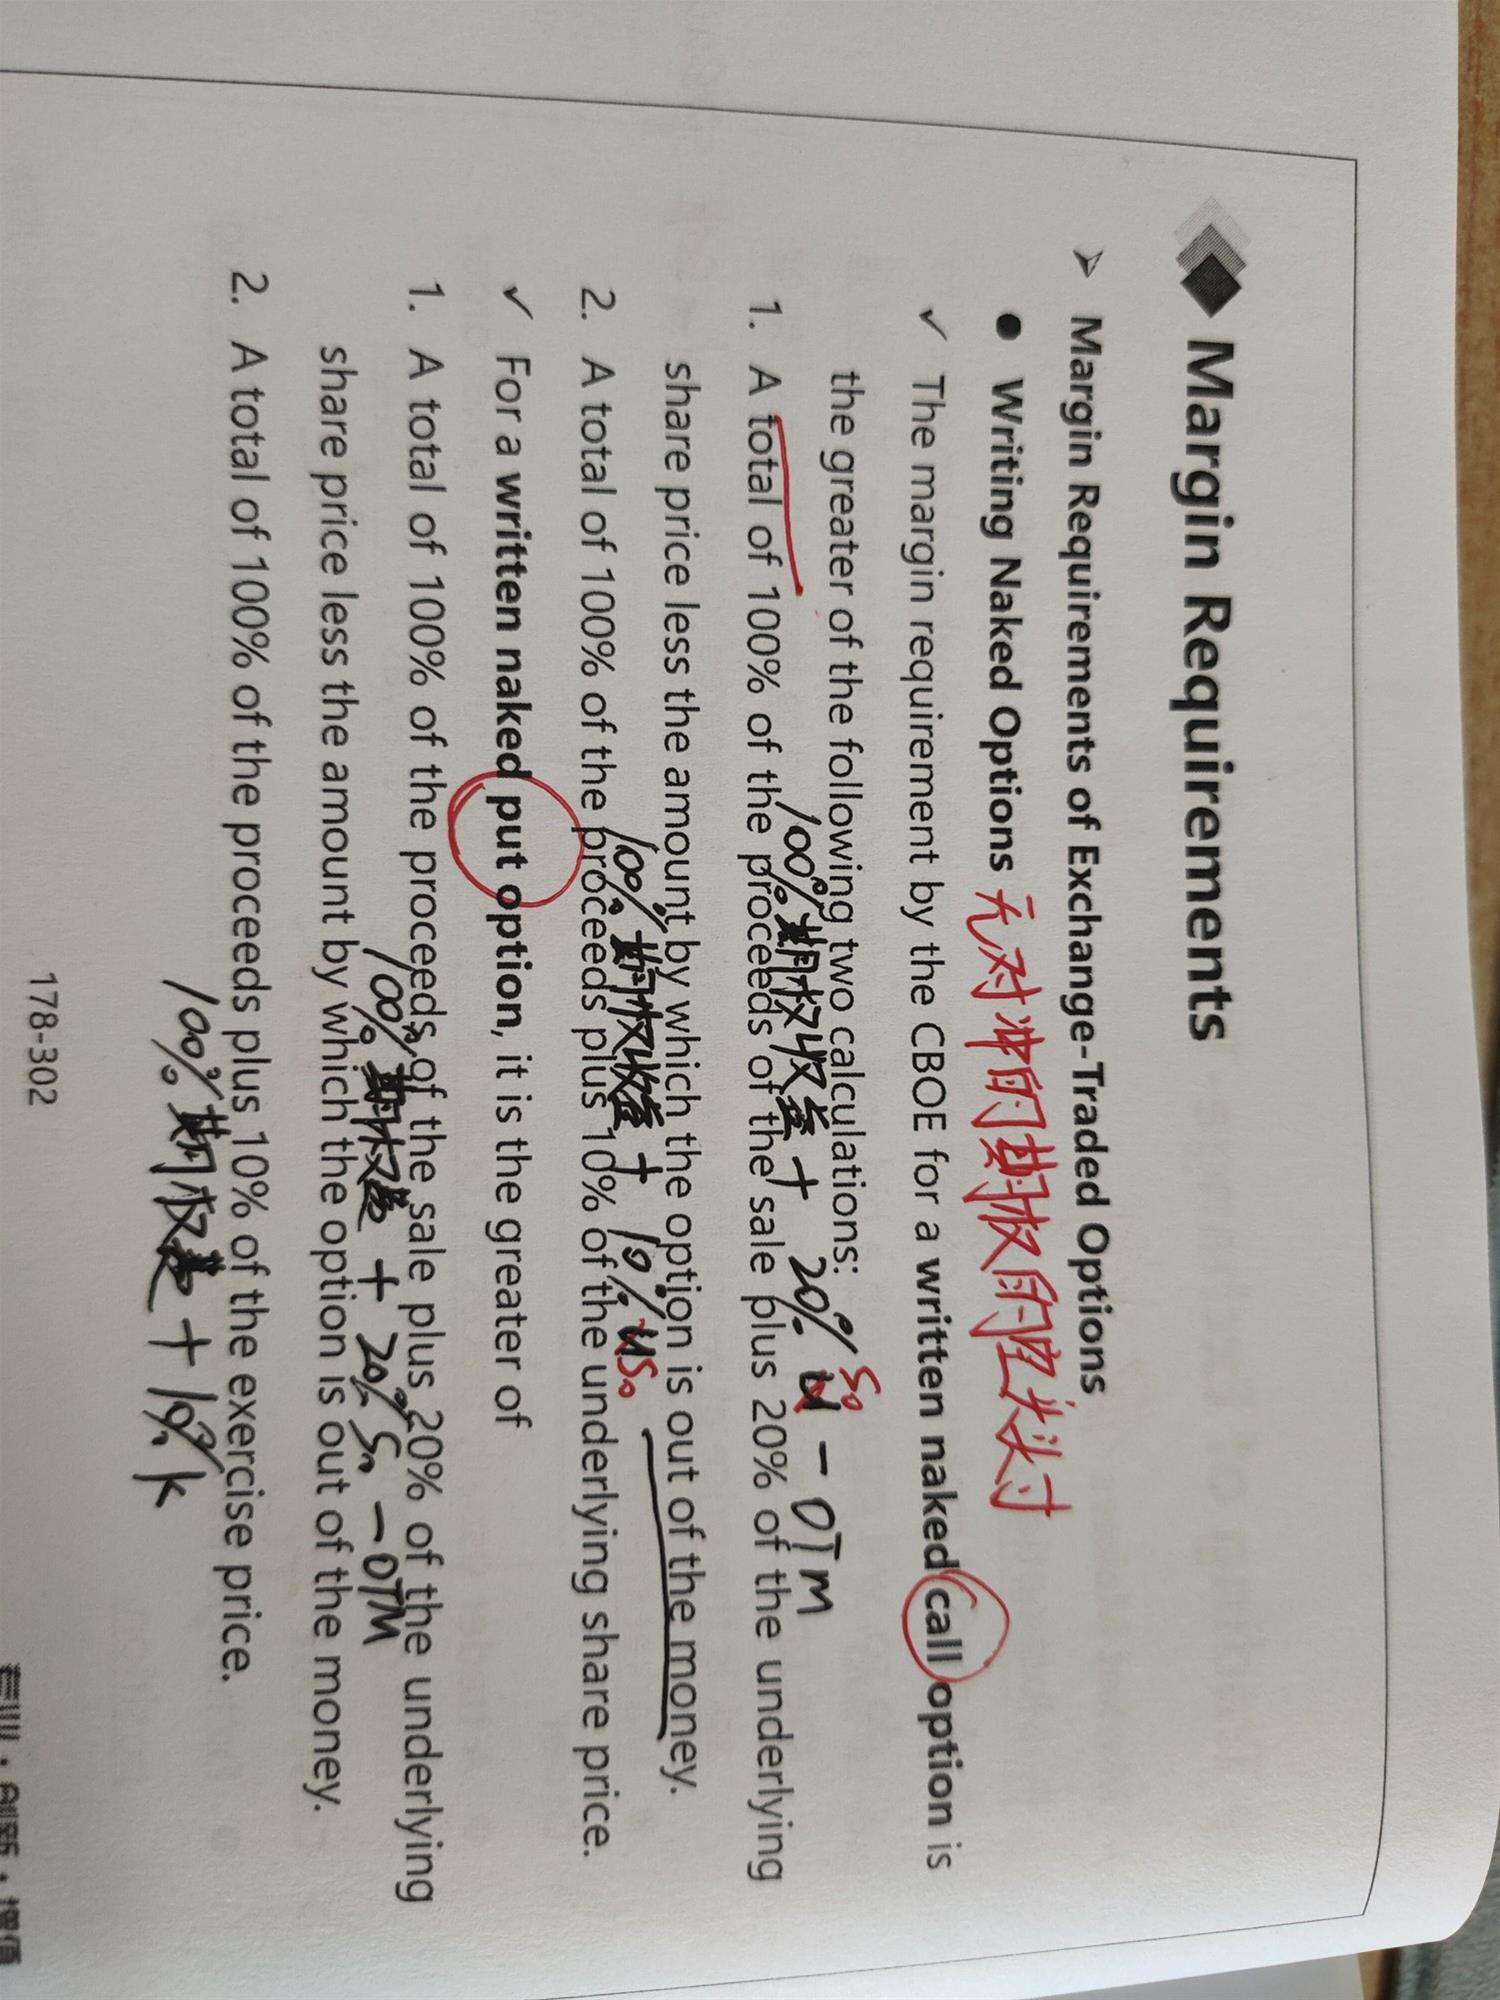 Margin Requirements
➢ Margin Requirements of Exchange-Traded Options
● Writing Naked Options 无对冲的期权的空头头寸
✓ The margin requirement by the CBOE for a written naked call option is
the greater of the following two calculations:
100% 期权收益 + 20% S₀ - OTM
1. A total of 100% of the proceeds of the sale plus 20% of the underlying
share price less the amount by which the option is out of the money.
100% 期权收益 + 10% S₀
2. A total of 100% of the proceeds plus 10% of the underlying share price.
✓ For a written naked put option, it is the greater of
1. A total of 100% of the proceeds of the sale plus 20% of the underlying
100% 期权 + 20% S₀ - OTM
share price less the amount by which the option is out of the money.
2. A total of 100% of the proceeds plus 10% of the exercise price.
100% 期权 + 10% k
178-302
创新·增值